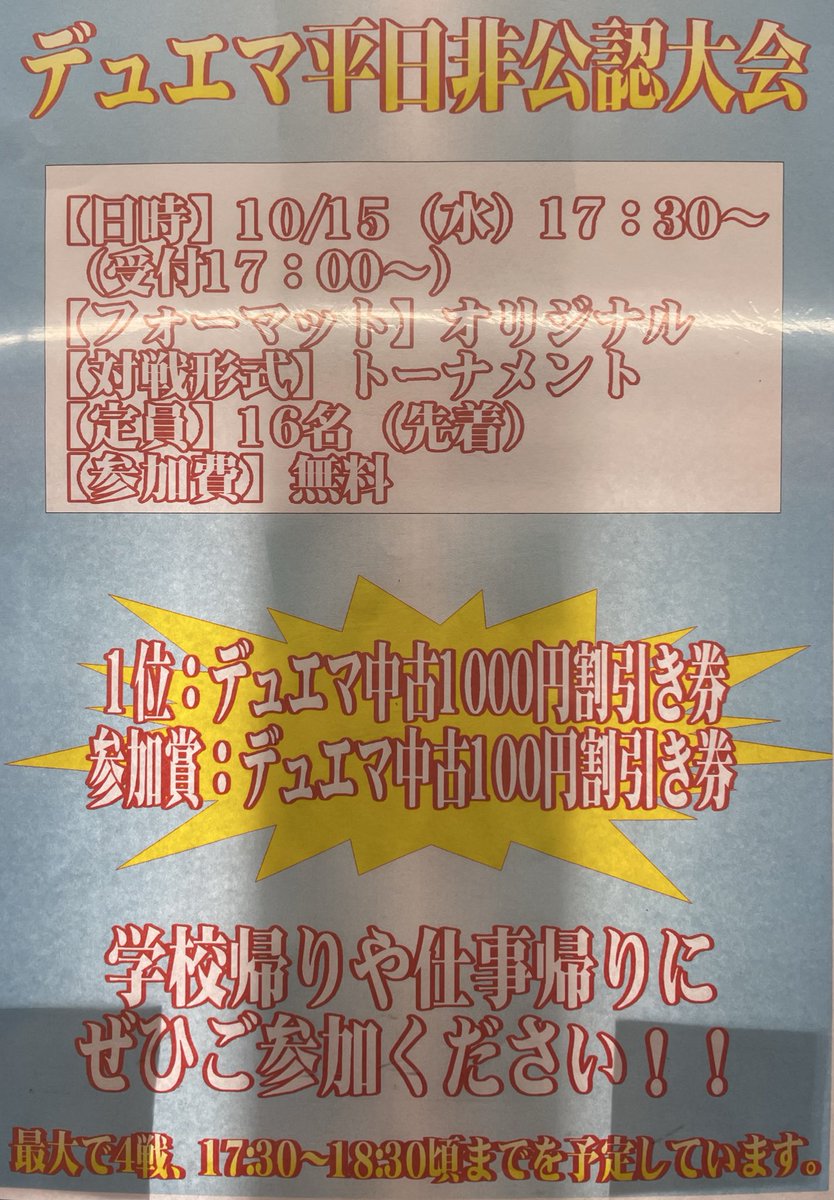 デュエマ平日非公認大会
【日時】10/15（水）17：30～
（受付17：00～）
【フォーマット】オリジナル
【対戦形式】トーナメント
【定員】16名（先着）
【参加費】無料
1位：デュエマ中古1000円割引き券
参加賞：デュエマ中古100円割引き券
学校帰りや仕事帰りに
ぜひご参加ください！！
最大で4戦、17:30～18:30頃までを予定しています。